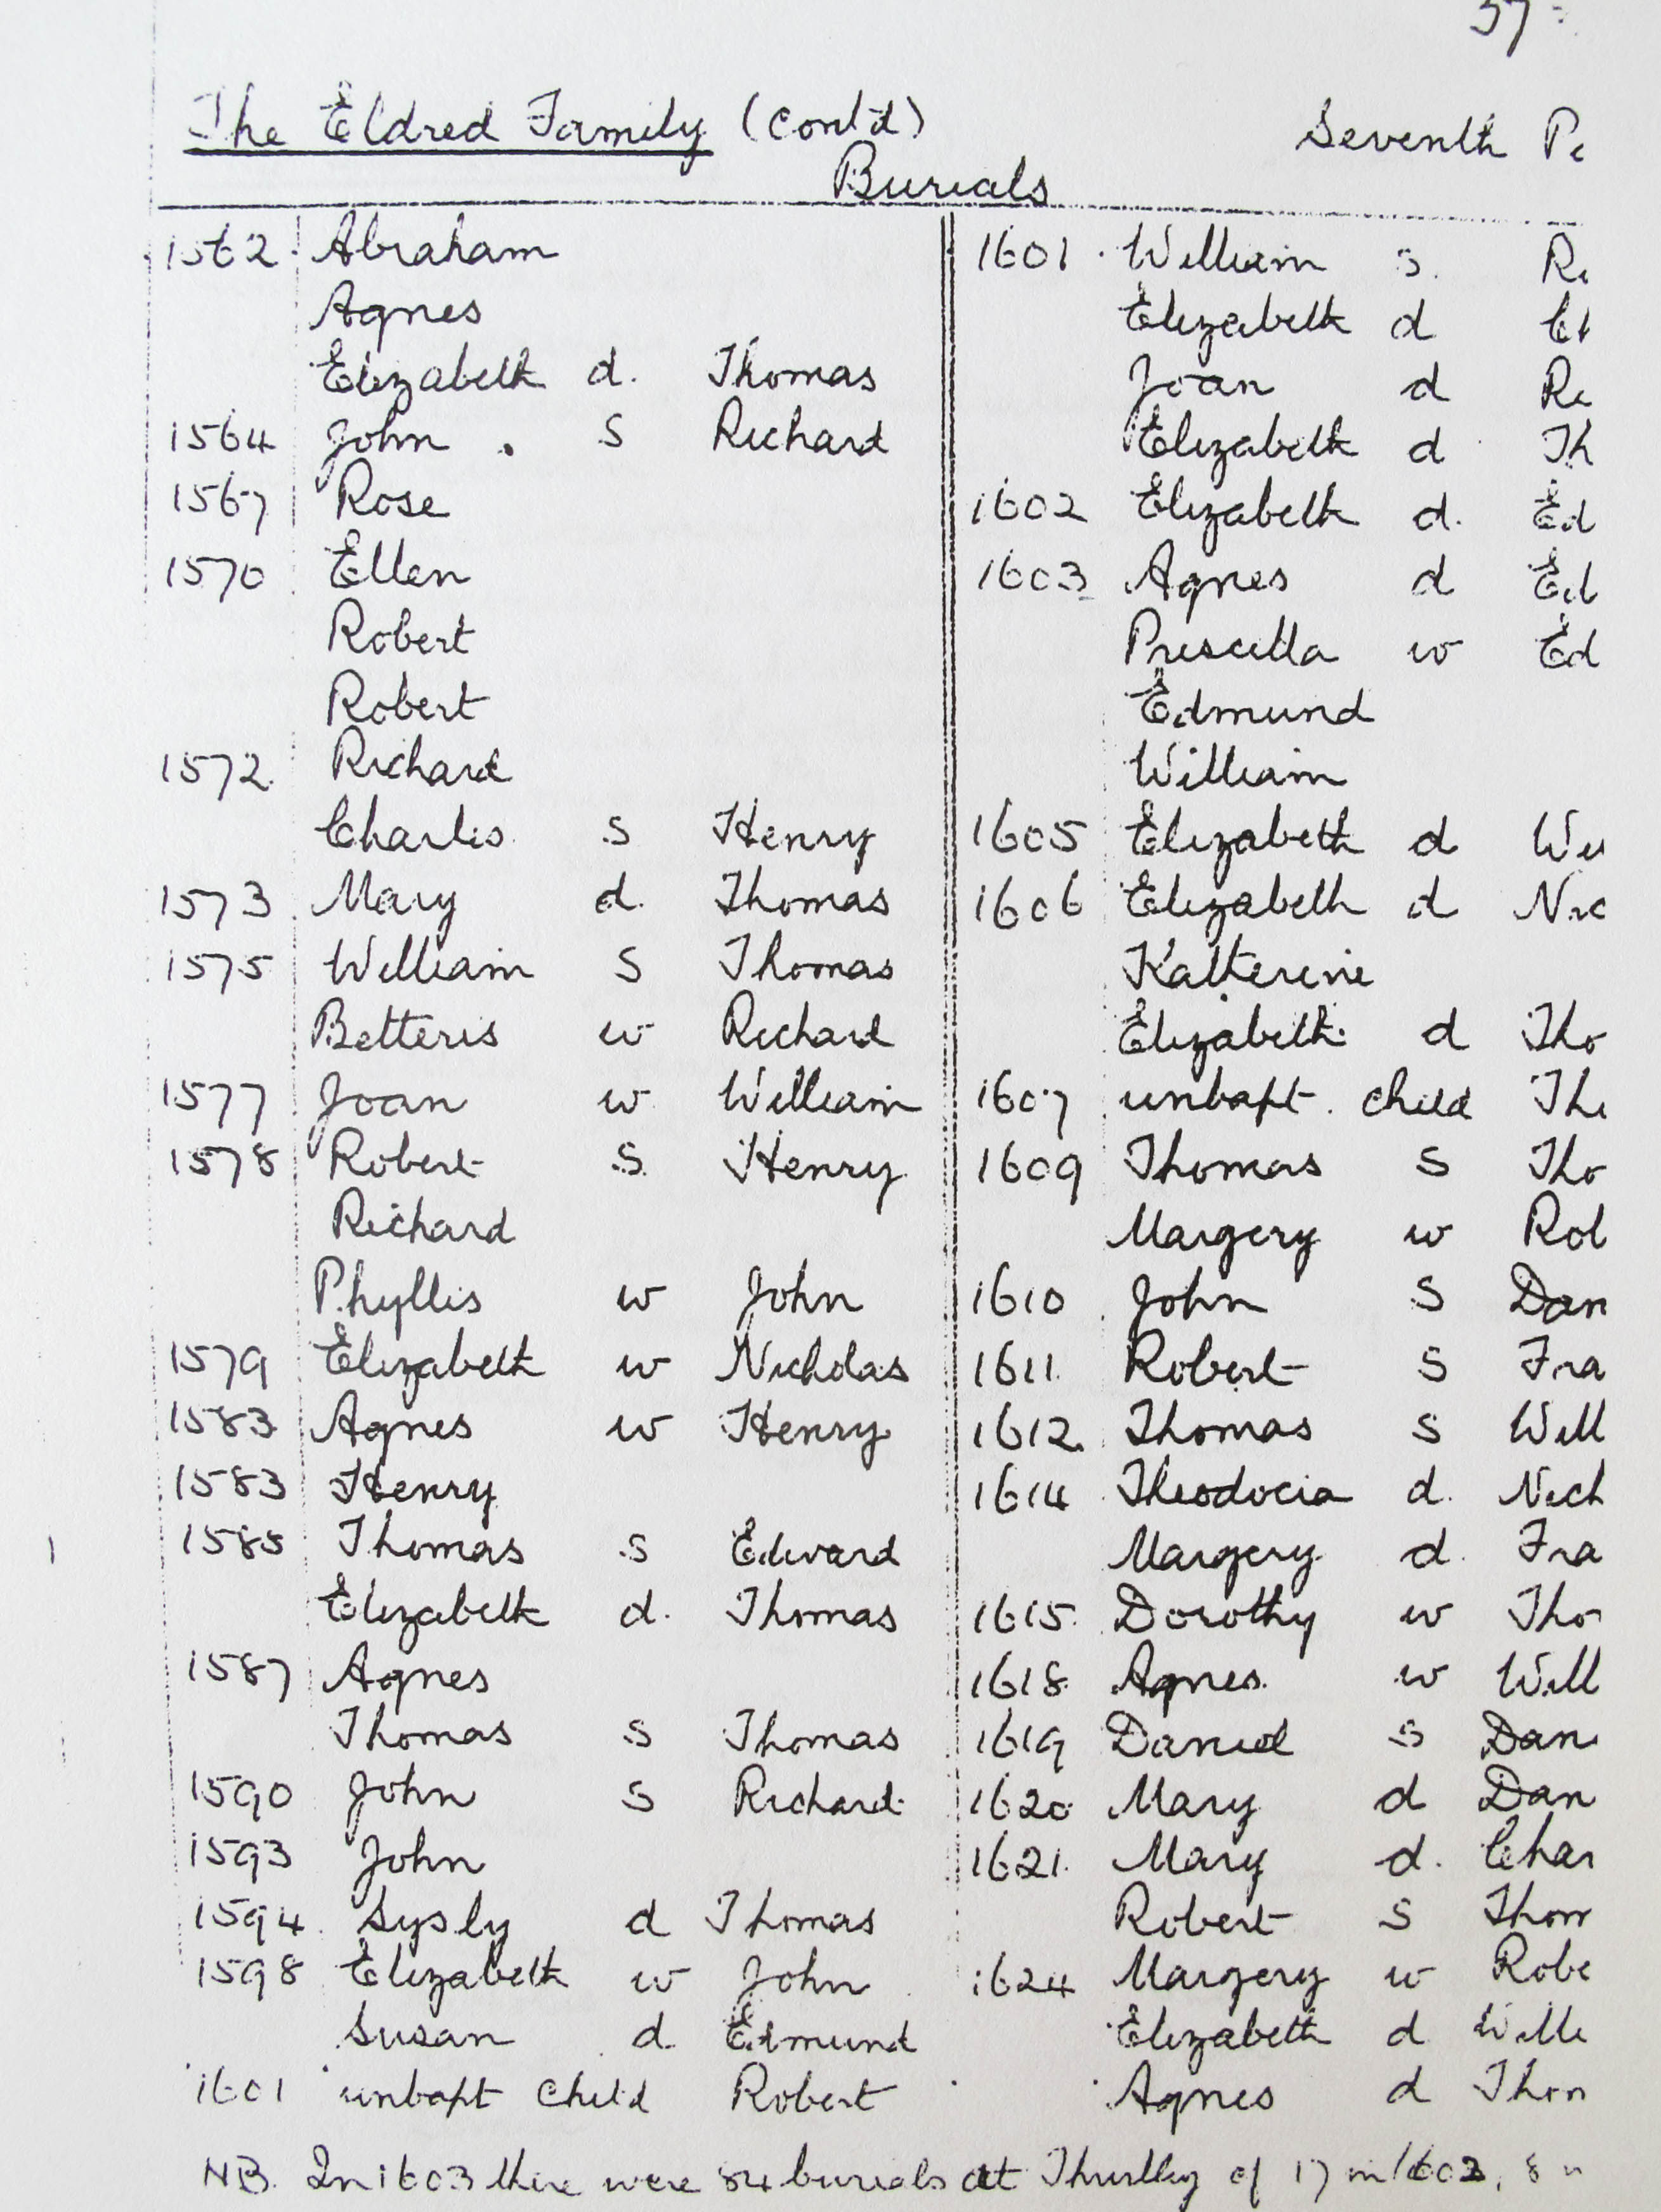 37
The Eldred Family (Cont'd)
Seventh
Burials
1562 Abraham
Agnes
Elizabeth d. Thomas
1564 John s Richard
1567 Rose
1570 Ellen
Robert
Robert
1572 Richard
Charles s Henry
1573 Mary d. Thomas
1575 William s Thomas
Betteris w Richard
1577 Joan w William
1578 Robert s Henry
Richard
Phyllis w John
1579 Elizabeth w Nicholas
1583 Agnes w Henry
1583 Henry
1585 Thomas s Edward
Elizabeth d. Thomas
1587 Agnes
Thomas s Thomas
1590 John s Richard
1593 John
1594 Sysly d Thomas
1598 Elizabeth w John
Susan d Edmund
1601 unbapt child Robert
1601 William s.
Elizabeth d
Joan d
Elizabeth d Th
1602 Elizabeth d. Ed
1603 Agnes d Ed
Priscilla w Ed
Edmund
William
1605 Elizabeth d
1606 Elizabeth d Nic
Katterine
Elizabeth d Tho
1607 unbapt. child
1609 Thomas s Tho
Margery w Rob
1610 John s Dan
1611 Robert s Fra
1612 Thomas s Will
1614 Theodocia d. Nich
Margery d. Fra
1615 Dorothy w Tho
1618 Agnes w Will
1619 Daniel s Dan
1620 Mary d Dan
1621 Mary d. Char
Robert s Thom
1624 Margery w Robe
Elizabeth d Willi
Agnes d Thom
NB. In 1603 there were 84 burials at of 17 in 1602, 8